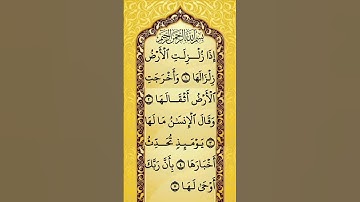 بسم الله الرحمن الرحيم
إِذَا زُلْزِلَتِ الْأَرْضُ
زِلْزَالَهَا ١ وَأَخْرَجَتِ
الْأَرْضُ أَثْقَالَهَا ٢
وَقَالَ الْإِنسَٰنُ مَا لَهَا
٣ يَوْمَئِذٍ تُحَدِّثُ
أَخْبَارَهَا ٤ بِأَنَّ رَبَّكَ
أَوْحَىٰ لَهَا ٥